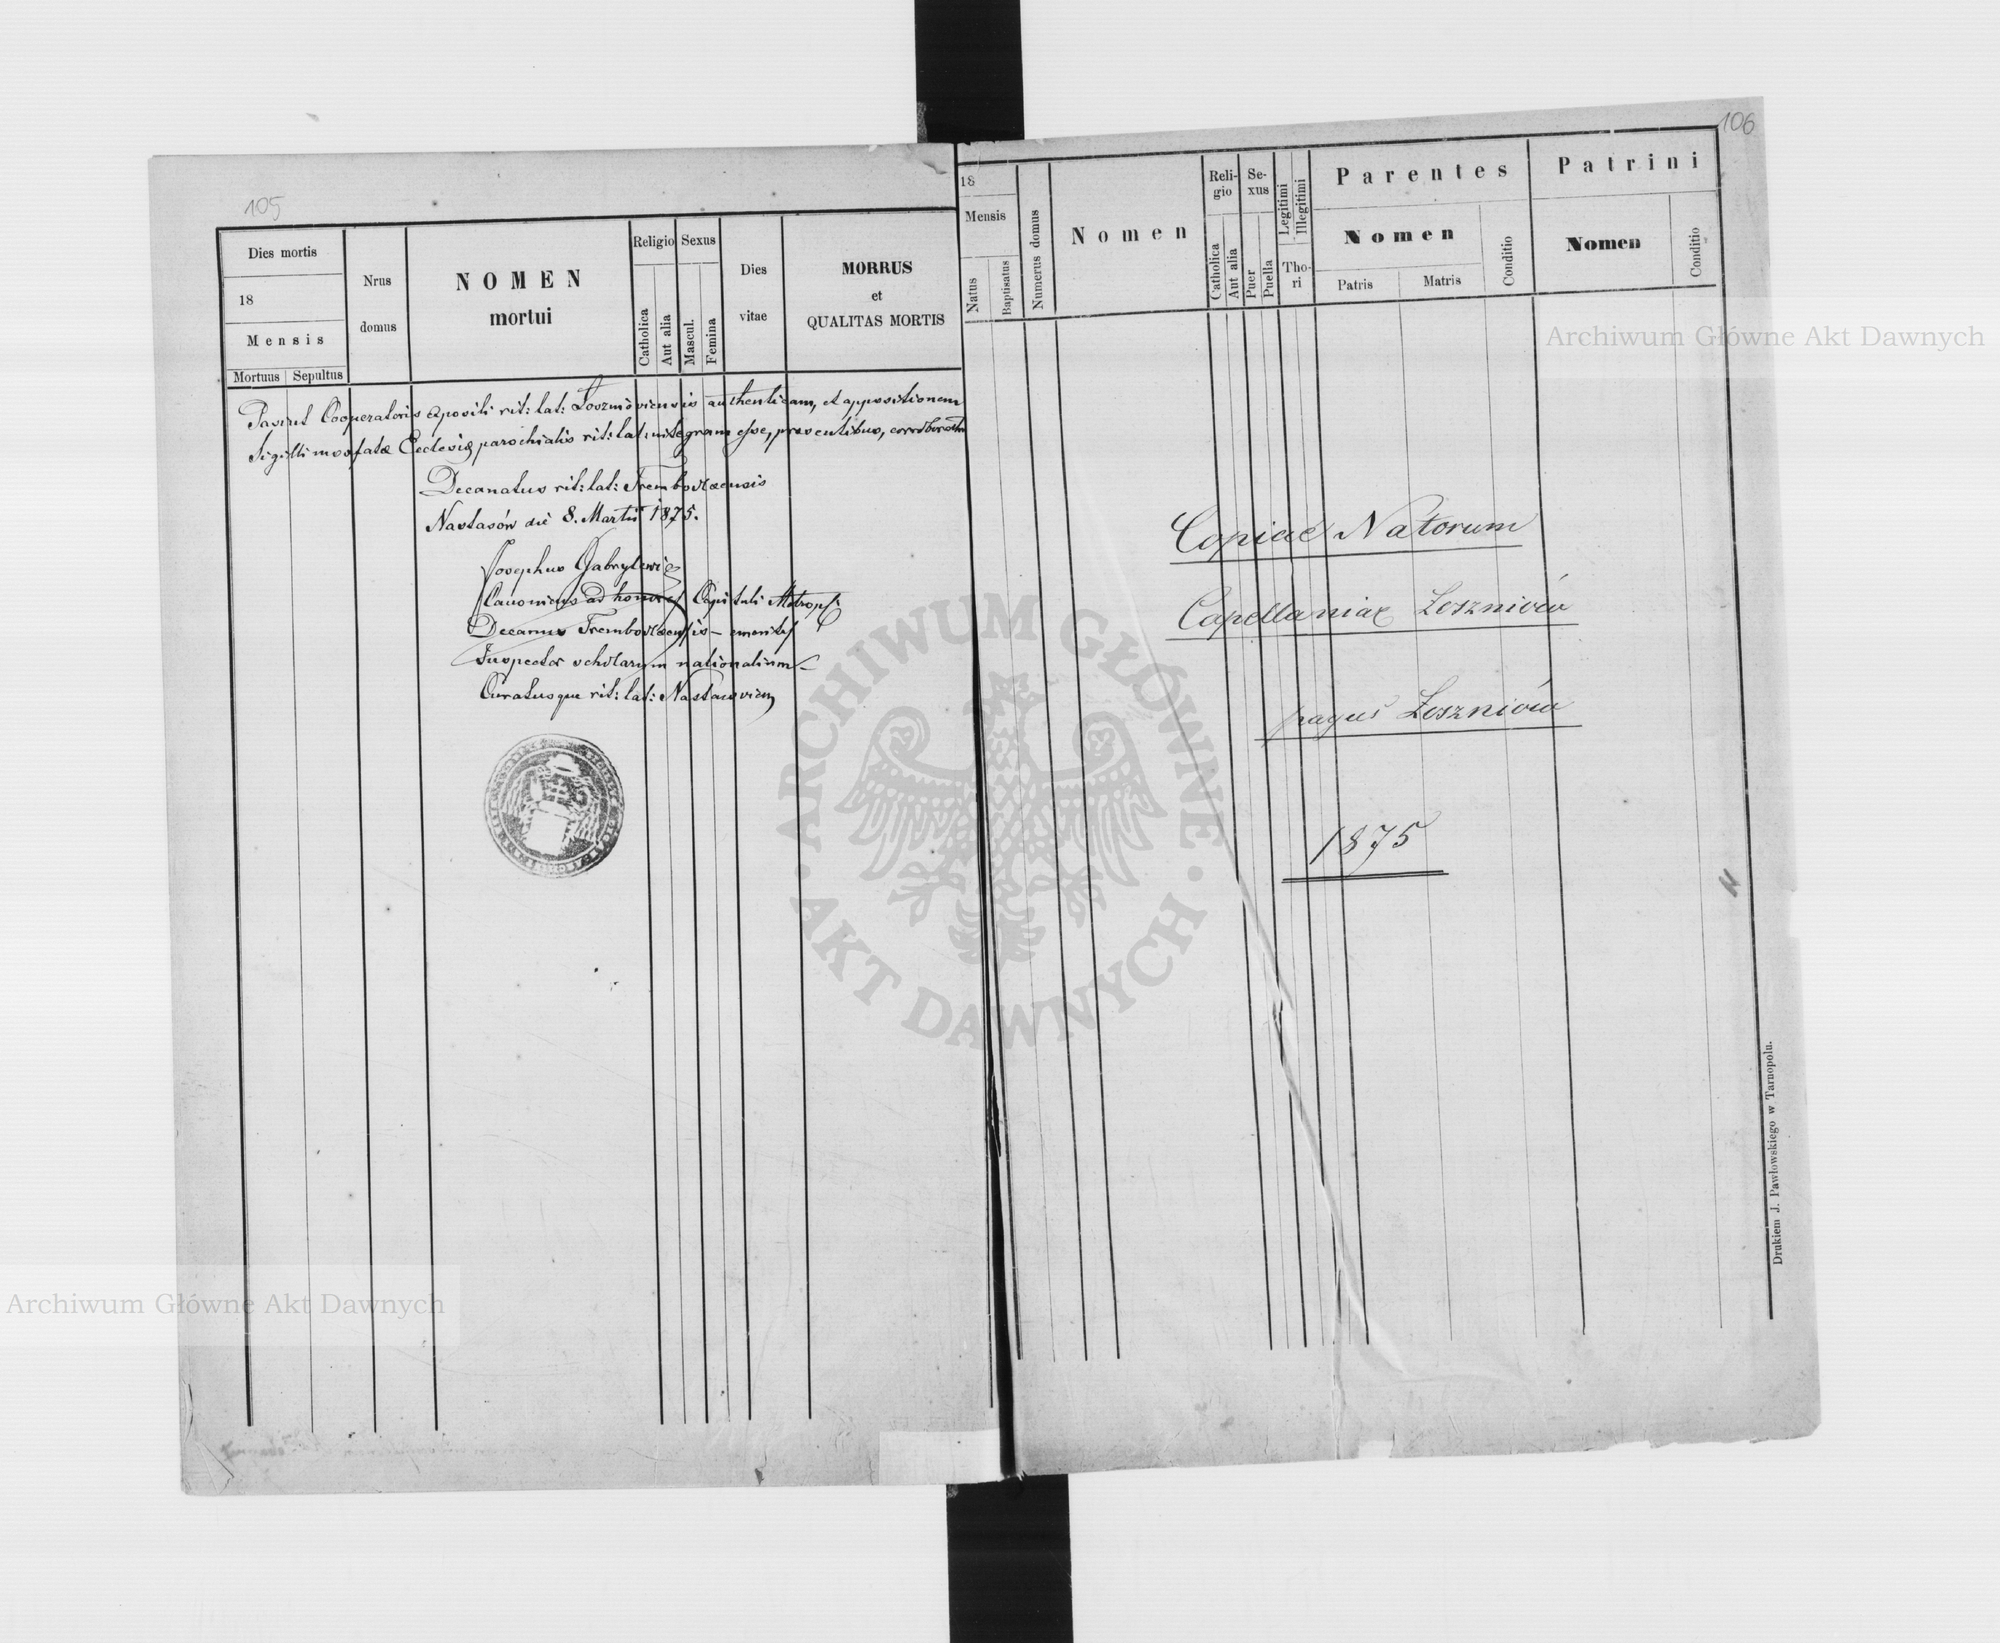 105
Dies mortis
18
Mensis
Mortuus Sepultus
Nrus
domus
NOMEN
mortui
Religio
Catholica
Aut alia
Sexus
Mascul.
Femina
Dies
vitae
MORRUS
et
QUALITAS MORTIS
Cooperatoris Expositi rit: lat: authenticam, et appositionem
Sigilli Ecclesiæ parochialis rit: lat: integram esse, præsentibus,
Decanatus rit: lat: Trembovlaensis
Nastasów die 8. Martii 1875.
Josephus Gabrylewicz
Canonicus ad honores Capituli
Decanus Trembovlaensis —
Inspector scholarum nationalium
Curatusque rit: lat:
106
18
Mensis
Natus
Baptisatus
Numerus domus
Nomen
Reli-
gio
Catholica
Aut alia
Se-
xus
Puer
Puella
Legitimi
Illegitimi
Tho-
ri
Parentes
Nomen
Patris
Matris
Conditio
Patrini
Nomen
Conditio
Copiae Natorum
Capellaniae Loszniów
pagus Loszniów
1875
Drukiem J. Pawłowskiego w Tarnopolu.
Archiwum Główne Akt Dawnych
Archiwum Główne Akt Dawnych
ARCHIWUM GŁÓWNE
AKT DAWNYCH